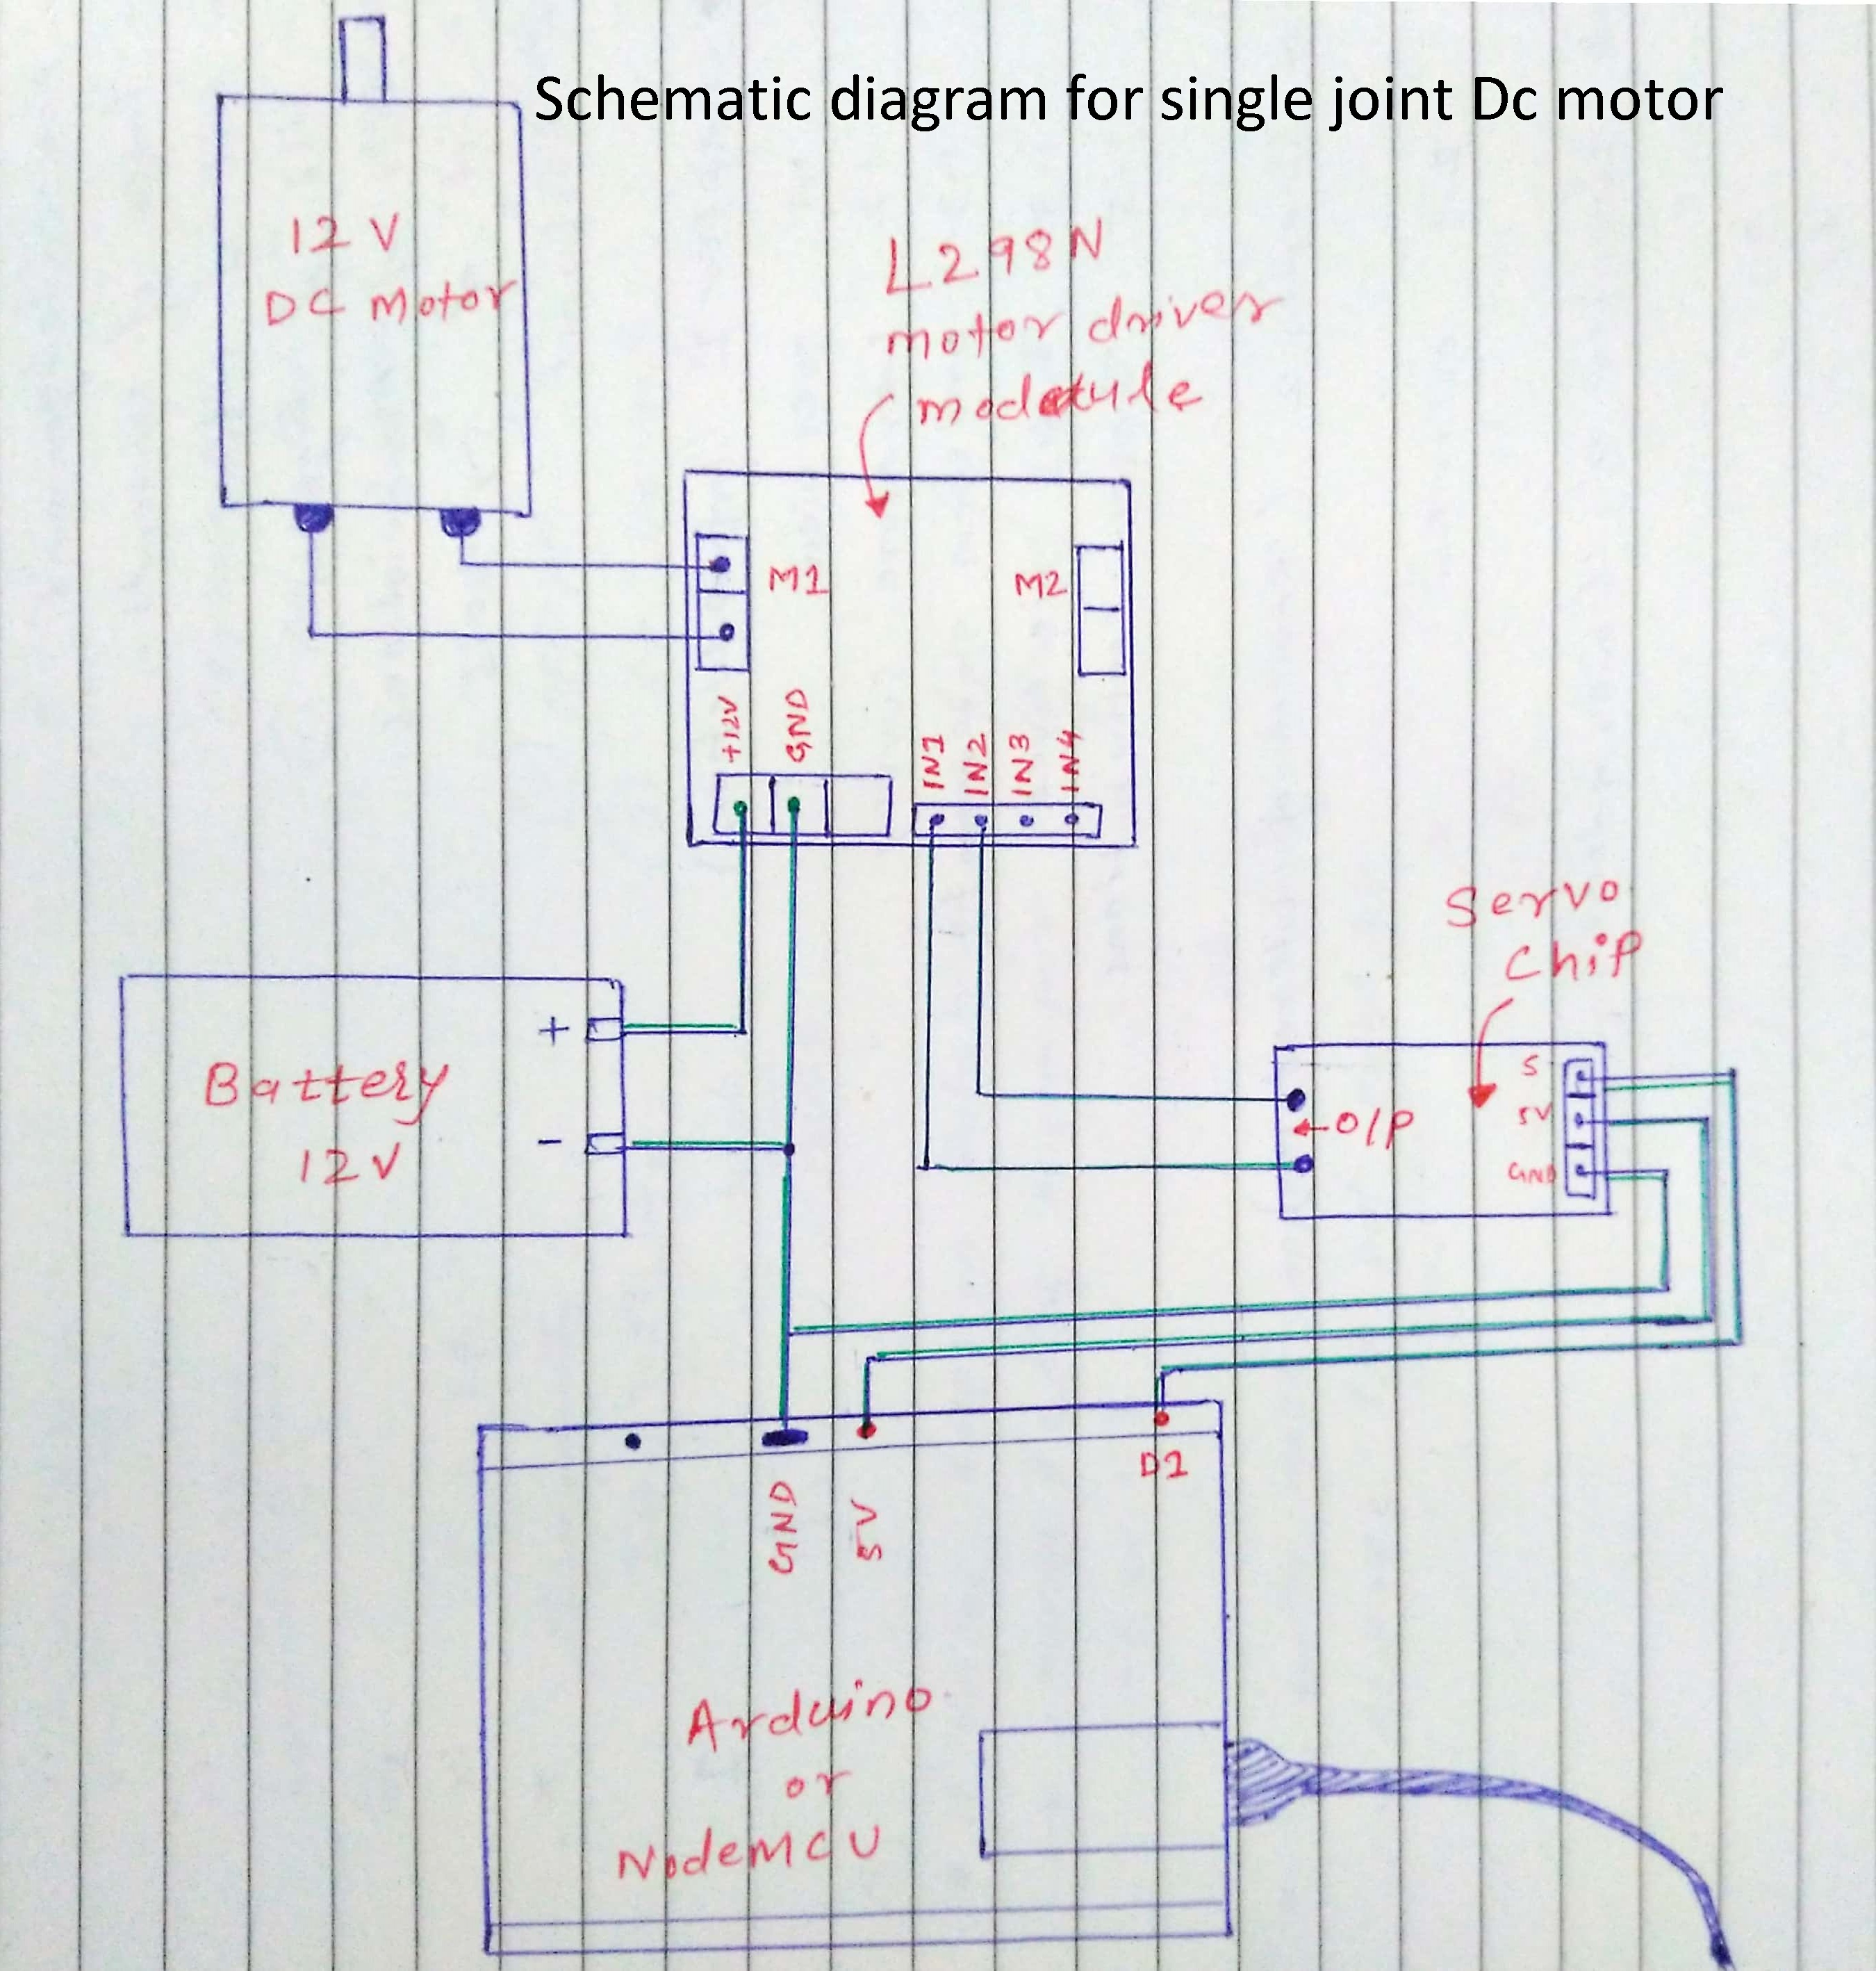 Schematic diagram for single joint Dc motor
12 V
DC Motor
L298N
motor driver
module
M1
M2
+12V
GND
IN1
IN2
IN3
IN4
Servo
Chip
S
5V
GND
←O/P
+
Battery
-
12V
D1
GND
5V
Arduino
or
NodeMCU